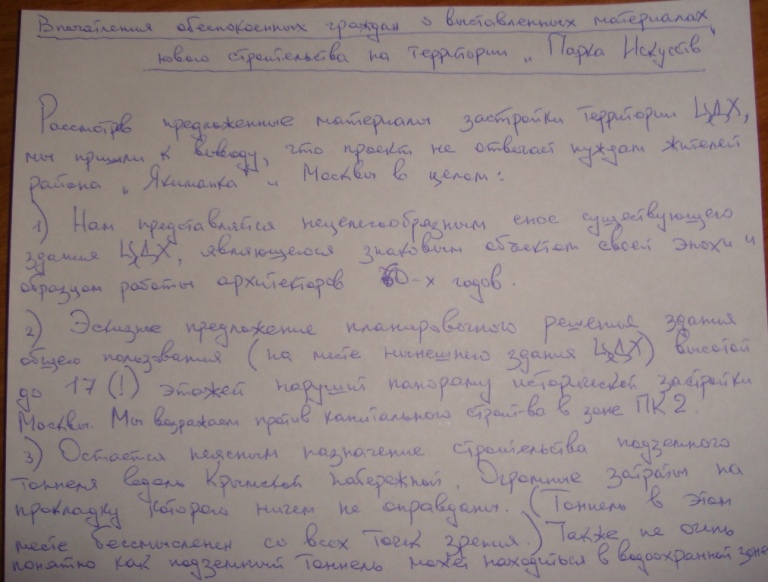 Впечатления обеспокоенных граждан о выставленных материалах
нового строительства на территории „Парка Искусств"
Рассмотрев предложенные материалы застройки территории ЦДХ,
мы пришли к выводу, что проект не отвечает нуждам жителей
района „Якиманка" и Москвы в целом:
1) Нам представляется нецелесообразным снос существующего
здания ЦДХ, являющегося знаковым объектом своей эпохи и
образцом работы архитекторов 60-х годов.
2) Эскизное предложение планировочного решения здания
общего пользования (на месте нынешнего здания ЦДХ) высотой
до 17 (!) этажей нарушит панораму исторической застройки
Москвы. Мы возражаем против капитального строит-ва в зоне ПК 2.
3) Остаётся неясным назначение строительства подземного
тоннеля вдоль Крымской набережной. Огромные затраты на
прокладку которого ничем не оправданы. (Тоннель в этом
месте бессмысленен со всех точек зрения.) Также не очень
понятно как подземный тоннель может находиться в водоохранной зоне